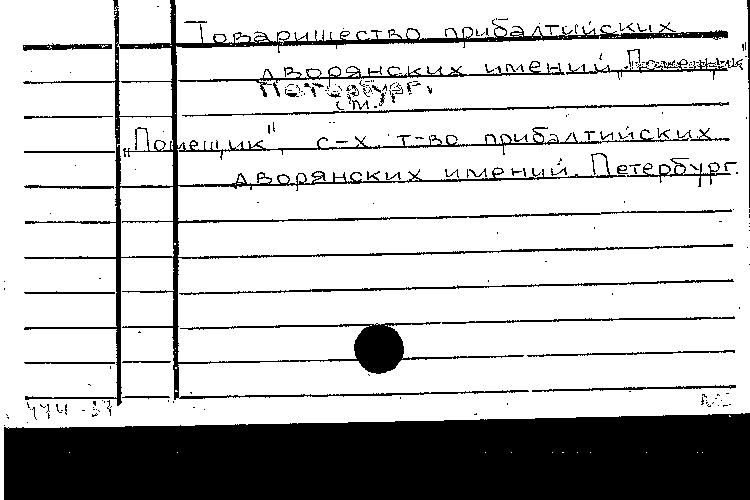 Товарищество прибалтийских
дворянских имений „Помещик"
Петербург.
см.
„Помещик", с-х т-во прибалтийских
дворянских имений. Петербург.